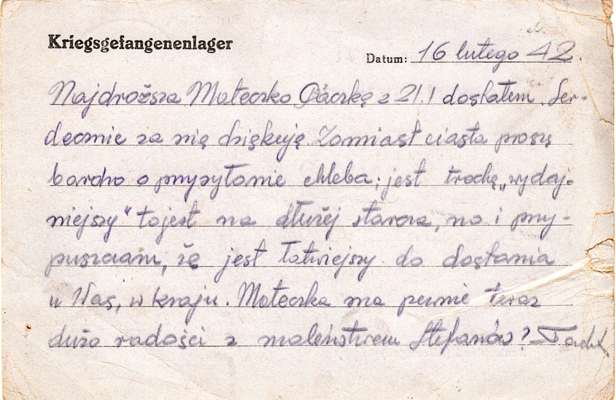 Kriegsgefangenenlager
Datum: 16 lutego 42.
Najdroższa Mateczko Paczkę z 21.I dostałem. Ser-
decznie za nią dziękuję. Zamiast ciasta proszę
bardzo o przysyłanie chleba; jest trochę „wydaj-
niejszy" to jest na dłużej starcza, no i przy-
puszczam, że jest łatwiejszy do dostania
u Was, w kraju. Mateczka ma pewnie teraz
dużo radości z maleństwem Stefanów? Tadek